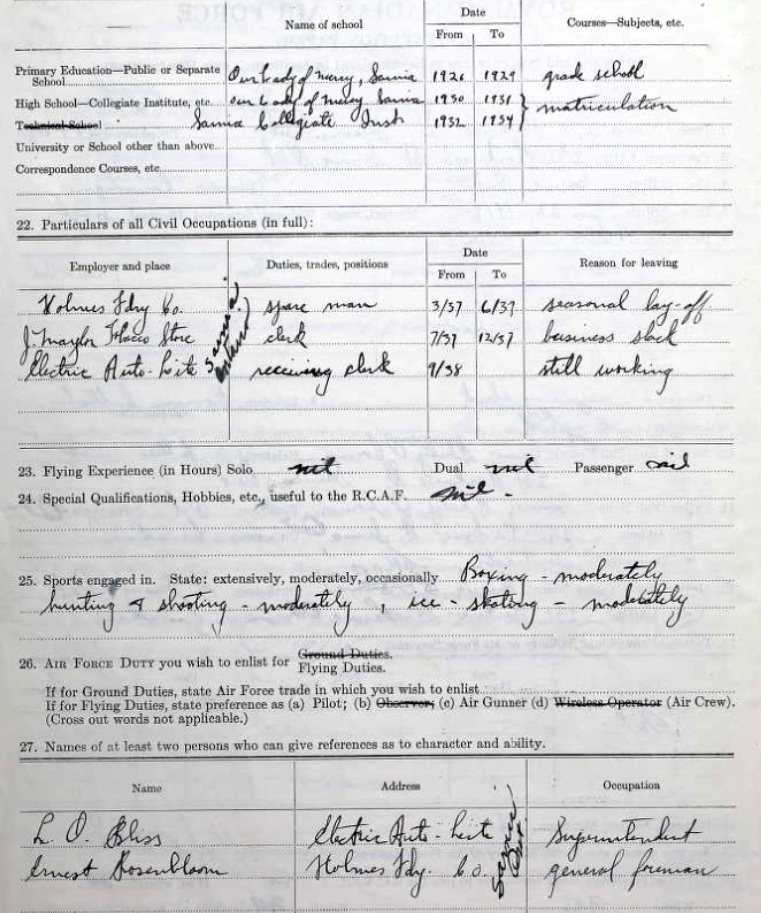 Name of school Date Courses—Subjects, etc.
From To
Primary Education—Public or Separate
School Our Lady of Mercy, Sarnia 1926 1929 grade school
High School—Collegiate Institute, etc. Our Lady of Mercy Sarnia 1930 1931 } matriculation
Technical School Sarnia Collegiate Inst 1932 1934
University or School other than above
Correspondence Courses, etc
22. Particulars of all Civil Occupations (in full):
Employer and place Duties, trades, positions Date Reason for leaving
From To
Holmes Fdry Co. spare man 3/37 6/37 seasonal lay-off
J. Naylor Tobacco Store clerk 7/37 12/37 business slack
Electric Auto-Lite receiving clerk 9/38 still working
Sarnia Ontario
23. Flying Experience (in Hours) Solo nil Dual nil Passenger nil
24. Special Qualifications, Hobbies, etc., useful to the R.C.A.F. nil -
25. Sports engaged in. State: extensively, moderately, occasionally Boxing - moderately
hunting & shooting - moderately, ice - skating - moderately
26. AIR FORCE DUTY you wish to enlist for Ground Duties.
Flying Duties.
If for Ground Duties, state Air Force trade in which you wish to enlist
If for Flying Duties, state preference as (a) Pilot; (b) Observer; (c) Air Gunner (d) Wireless Operator (Air Crew).
(Cross out words not applicable.)
27. Names of at least two persons who can give references as to character and ability.
Name Address Occupation
L. O. Bliss Electric Auto-Lite Superintendent
Ernest Rosenbloom Holmes Fdy. Co. general foreman
Sarnia Ont.